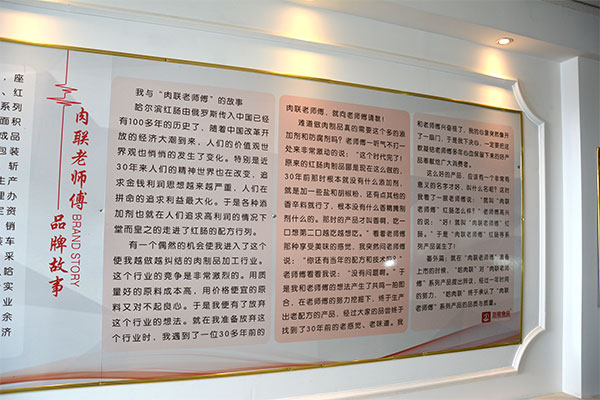 座
、红
系列
面积
成品
包装
、斩
生产
理办
定资
，销
装车
采
哈
实业
余
济
肉联老师傅
BRAND STORY
品牌故事
我与“肉联老师傅”的故事
哈尔滨红肠由俄罗斯传入中国已经
有100多年的历史了，随着中国改革开
放的经济大潮到来，人们的价值观世
界观也悄悄的发生了变化。特别是近
30年来人们的精神世界也在改变，追
求金钱利润思想越来越严重，人们在
拼命的追求利益最大化。于是各种添
加剂也就在人们追求高利润的情况下
堂而皇之的走进了红肠的配方行列。
有一个偶然的机会使我进入了这个
使我越做越纠结的肉制品加工行业。
这个行业的竞争是非常激烈的。用质
量好的原料成本高，用价格便宜的原
料又对不起良心。于是我便有了放弃
这个行业的想法。就在我准备放弃这
个行业时，我遇到了一位30多年前的
肉联老师傅，就向老师傅请教！
难道做肉制品真的需要这个多的添
加剂和防腐剂吗？老师傅一听气不打一
处来非常激动的说：“这个时代完了！
原来的红肠肉制品都是现在这么做的，
30年前那时根本就没有什么添加剂，
就是加一些盐和胡椒粉，还有点其他的
香辛料就行了，根本没有什么香精腌制
剂什么的。那时的产品才叫香啊，吃一
口想第二口越吃越想吃。”看着老师傅
那种享受美味的感觉，我突然问老师傅
说：“你还有当年的配方和技术吗？”
老师傅看着我说：“没有问题啊。”于
是我和老师傅的想法产生了共鸣一拍即
合，在老师傅的努力挖掘下，终于生产
出老配方的产品，经过大家的品尝终于
找到了30年前的老感觉、老味道。我
和老师傅兴奋极了，我的心象突然象开
了一扇门，于是我下决心，一定要把这
款凝结老师傅多年心血保留下来的好产
品奉献给广大消费者。
这么好的产品，应该有一个非常有
意义的名字才好，叫什么名呢？这时
我看了一眼老师傅说：“就叫‘肉联
老师傅’红肠怎么样？”老师傅高兴
的说：“好！就叫‘肉联老师傅’。”
于是“肉联老师傅”红肠等系
列产品诞生了！
番外篇：就在“肉联老师傅”准备
上市的时候，“哈肉联”对“肉联老师
傅”系列产品提出异议，经过一年时间
的努力，“哈肉联”终于承认了“肉联
老师傅”系列产品的品质与质量。